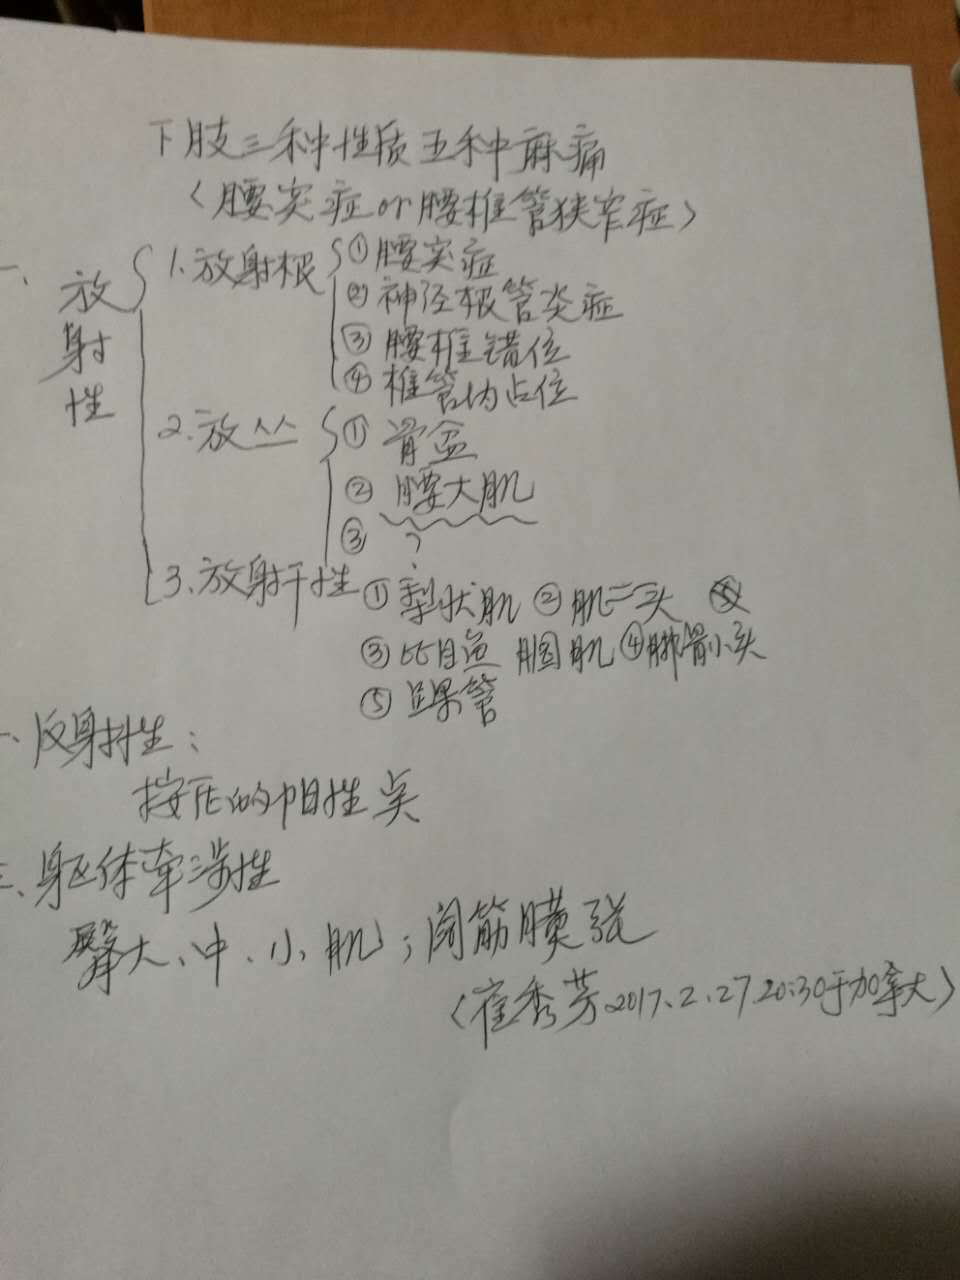 下肢三种性质五种麻痛
（腰突症or腰椎管狭窄症）
一、放射性
1.放射根 ①腰突症
②神经根管炎症
③腰椎错位
④椎管内占位
2.放丛 ①骨盆
②腰大肌
③ ?
3.放射干性 ①梨状肌 ②肌二头
③比目鱼 腘肌 ④腓骨小头
⑤踝管
二、反射性：
按压的阳性点
三、躯体牵涉性
臀大、中、小肌；阔筋膜张
（崔秀芳2017.2.27.20:30于加拿大）